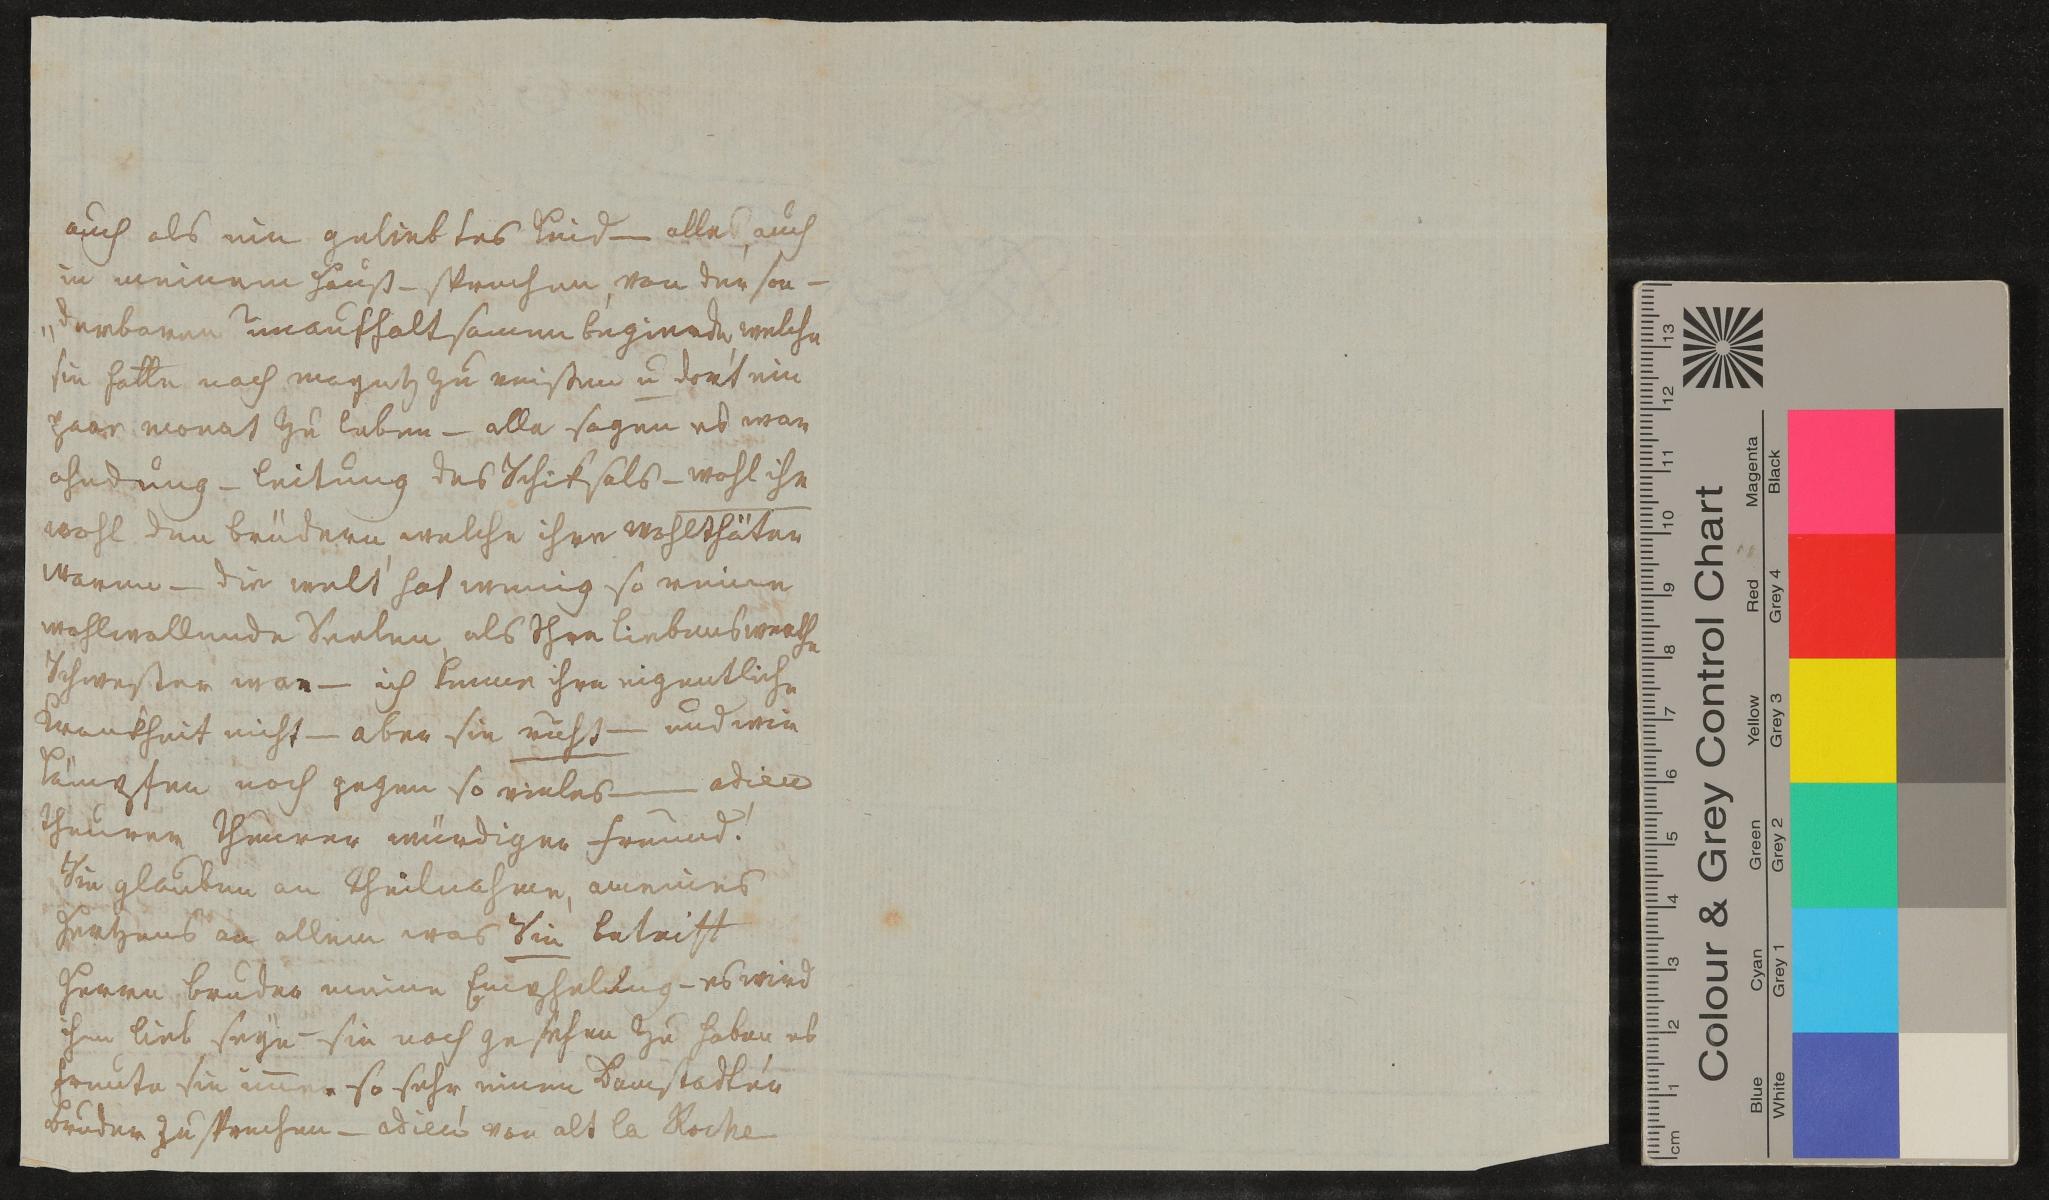 auch als ein geliebtes Kind — alles, auch
in meinem Hauß – sprechen, von der son –
„derbaren unaufhaltsamen begierde, welche
sie hatte nach mayntz zu reißen u dort ein
paar monat zu leben – alle sagen es war
ahndung – leitung des Schiksals – wohl ihr
wohl den brüdern, welche ihre wohlthäter
waren – die welt hat wenig so reine
wohlwollende Seelen, als Ihre liebenswerthe
Schwester war — ich kenne ihre eigentliche
Krankheit nicht — aber sie ruht — und wir
kämpfen noch gegen so vieles —— adieu
theurer theurer würdiger freund!
Sie glauben an theilnahme, meines
Hertzens an allem was Sie betrifft
Herrn bruder meine Empfhelung – es wird
ihm lieb seyn – sie noch gesehen zu haben es
freute sie immer so sehr, einen Darmstadter
bruder zu sprechen — adieu von alt la Roche
Colour & Grey Control Chart
Blue Cyan Green Yellow Red Magenta
White Grey 1 Grey 2 Grey 3 Grey 4 Black
cm 1 2 3 4 5 6 7 8 9 10 11 12 13